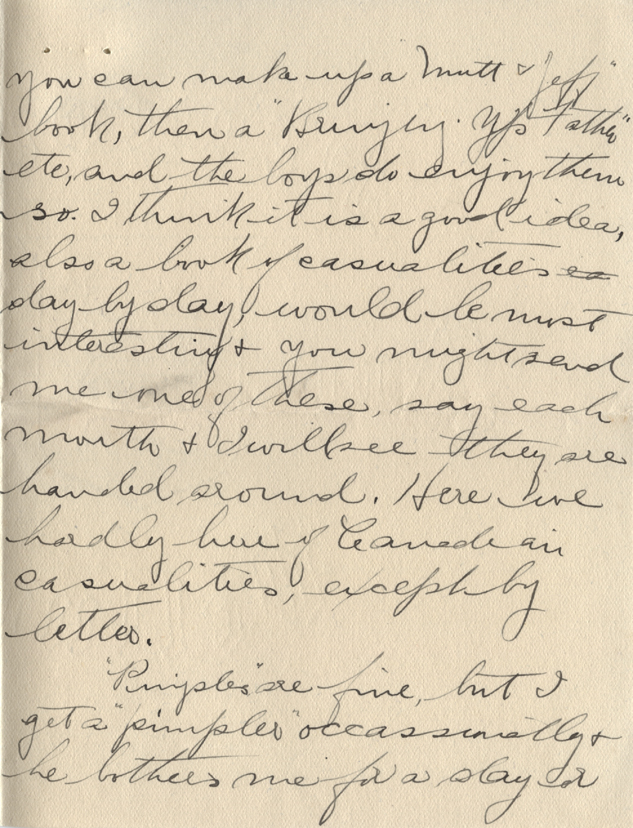 you can make up a "Mutt & Jeff"
book, then a "Bringing Up Father"
etc, and the boys do enjoy them
so. I think it is a good idea,
also a book of casualities
day by day, would be most
interesting & you might send
me one of these, say each
month & I will see they are
handed around. Here we
hardly here of Canadian
casualities, except by
letter.
"Pimples" are fine, but I
get a "pimple" occassionally &
he bothers me for a day or